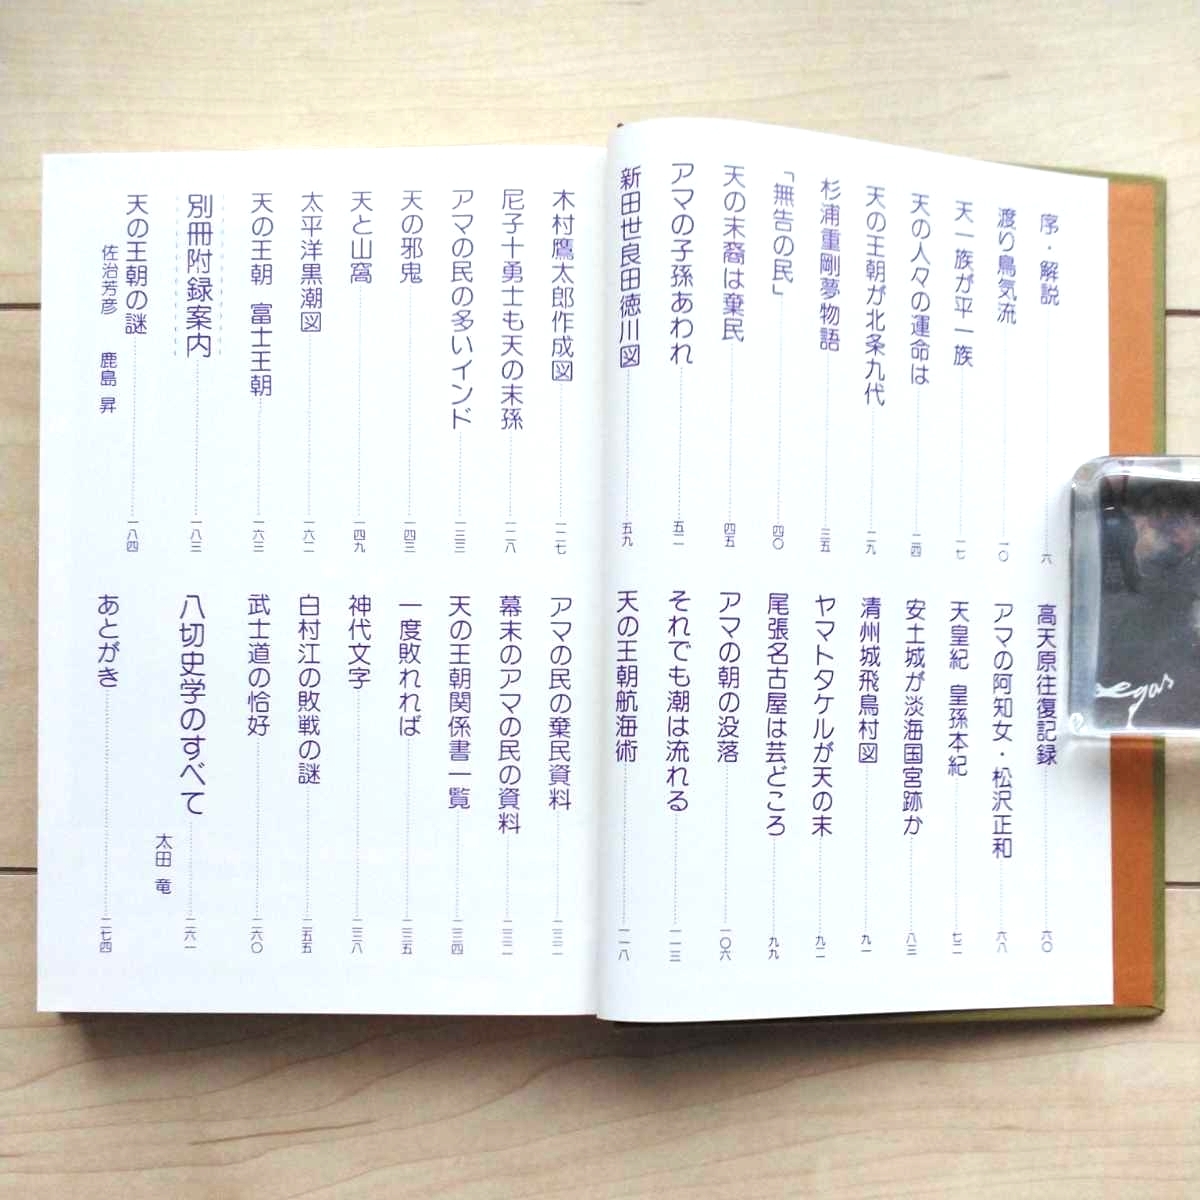 序・解説 六
渡り鳥気流 一〇
天一族が平一族 一七
天の人々の運命は 二四
天の王朝が北条九代 二九
杉浦重剛夢物語 三五
「無告の民」 四〇
天の末裔は棄民 四五
アマの子孫あわれ 五二
新田世良田徳川図 五九
高天原往復記録 六〇
アマの阿知女・松沢正和 六八
天皇紀 皇孫本紀 七二
安土城が淡海国宮跡か 八三
清州城飛鳥村図 九一
ヤマトタケルが天の末 九二
尾張名古屋は芸どころ 九九
アマの朝の没落 一〇六
それでも潮は流れる 一一三
天の王朝航海術 一一八
木村鷹太郎作成図 一二七
尼子十勇士も天の末孫 一二八
アマの民の多いインド 一三三
天の邪鬼 一四三
天と山窩 一四九
太平洋黒潮図 一六二
天の王朝 富士王朝 一六三
別冊附録案内 一八三
天の王朝の謎 一八四
佐治芳彦 鹿島 昇
アマの民の棄民資料 二三二
幕末のアマの民の資料 二三二
天の王朝関係書一覧 二三四
一度敗れれば 二三五
神代文字 二三八
白村江の敗戦の謎 二五五
武士道の恰好 二六〇
八切史学のすべて 二六一
太田 竜
あとがき 二七四
egas